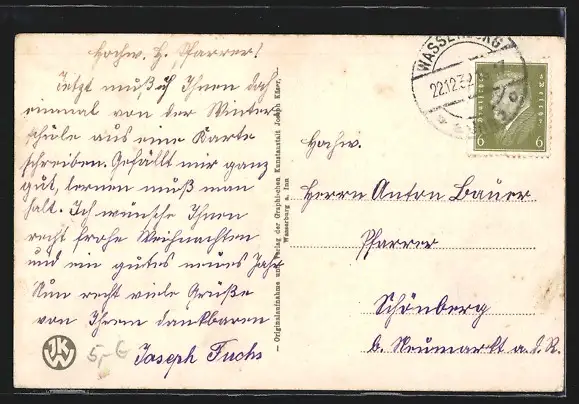 Hochw. H. Pfarrer!
Jetzt muß ich Ihnen doch
einmal von der Winter-
schule aus eine Karte
schreiben. Gefällt mir ganz
gut, lernen muß man
halt. Ich wünsche Ihnen
recht frohe Weihnachten
und ein gutes neues Jahr
Nun recht viele Grüße
von Ihrem dankbaren
Joseph Fuchs
5,- €
JKW
— Originalaufnahme und Verlag der Graphischen Kunstanstalt Joseph Käser, —
Wasserburg a. Inn
WASSERBURG
22.12.32
Deutsches Reich
6 6
Hochw.
Herrn Anton Bauer
Pfarrer
Schönberg
b. Neumarkt a. d. R.